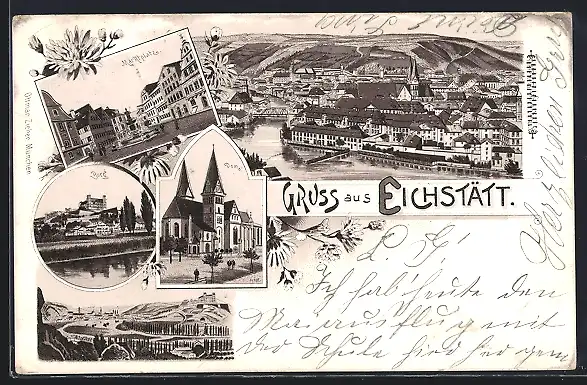 Marktplatz
Burg
Dom
Ottmar Zieher München
GRUSS aus EICHSTÄTT.
Herzlichen Gruß
L. G!
Ich hab' heute den
Maiausflug mit
der Schule hierher gem